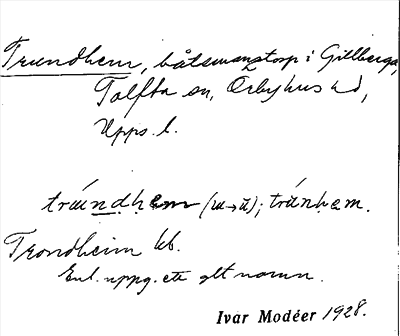 Trundhem, båtsmanstorp i Gillberga,
Tolfta sn, Örbyhus hd,
Upps. l.
trúndhem (u→ū); trúnhem.
Trondheim kb.
Enl. uppg. ett glt namn.
Ivar Modéer 1928.